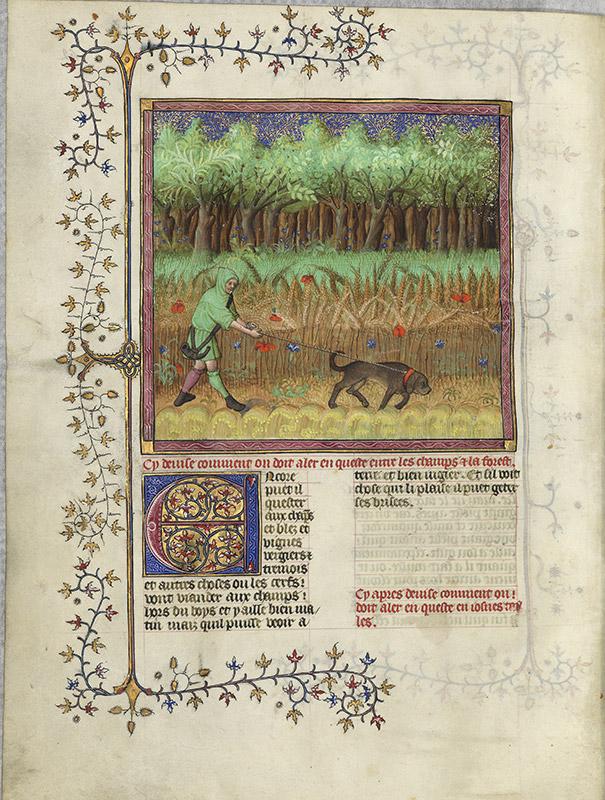 Cy deuise comment on doit aler en queste entre les champs & la forest.
Encore
puet il
quester
aux chaps
et blez et
vignes
vergiers &
tremois
et autres choses ou les cerfs
vont viander aux champs
hors du boys et y aille bien ma
tin maiz quil puisse veoir a
terre et bien iugier. Et sil voit
chose qui li plaise il puet geter
ses brisees.
Cy apres deuise comment on
doit aler en queste en iosnes tail
les.